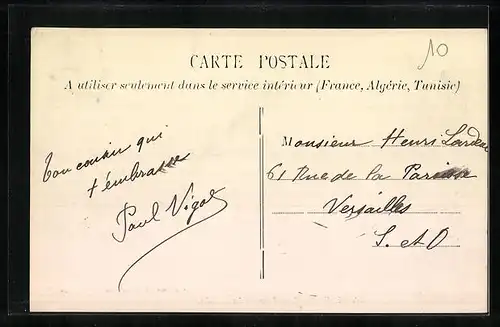 10
CARTE POSTALE
A utiliser seulement dans le service intérieur (France, Algérie, Tunisie)
Ton cousin qui
t'embrasse
Paul Vigot
Monsieur Henri
61 Rue de la Paroisse
Versailles
S. et O